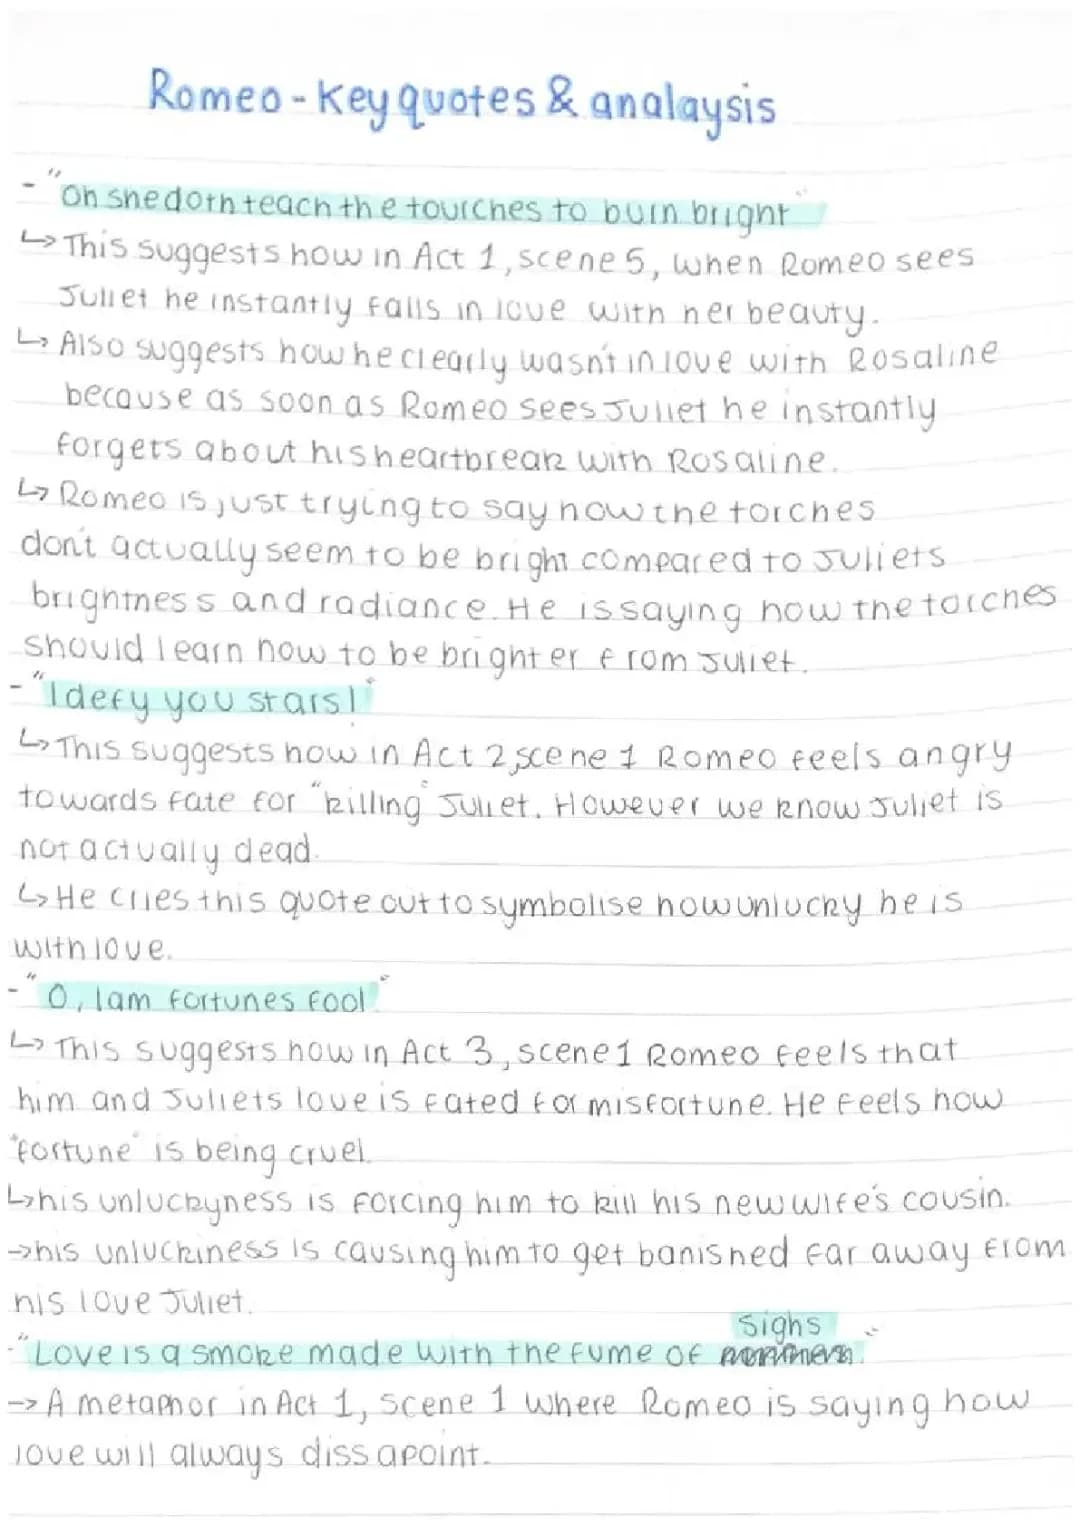 Romeo - Key quotes & analaysis
- "Oh she doth teach the tourches to burn bright"
↳ This suggests how in Act 1, scene 5, when Romeo sees
Juliet he instantly falls in love with her beauty.
↳ Also suggests how he clearly wasn't in love with Rosaline
because as soon as Romeo sees Juliet he instantly
forgets about his heartbreak with Rosaline.
↳ Romeo is just trying to say how the torches
don't actually seem to be bright compared to Juliets
brightness and radiance. He is saying how the torches
should learn how to be brighter from Juliet.
- "I defy you stars!"
↳ This suggests how in Act 2, scene 1 Romeo feels angry
towards fate for "killing" Juliet. However we know Juliet is
not actually dead.
↳ He cries this quote out to symbolise how unlucky he is
with love.
- "O, I am fortunes fool"
↳ This suggests how in Act 3, scene 1 Romeo feels that
him and Juliets love is fated for misfortune. He feels how
"fortune" is being cruel.
↳ his unluckyness is forcing him to kill his new wife's cousin.
→ his unluckiness is causing him to get banished far away from
his love Juliet.
sighs
- "Love is a smoke made with the fume of ."
→ A metaphor in Act 1, scene 1 where Romeo is saying how
love will always dissapoint.